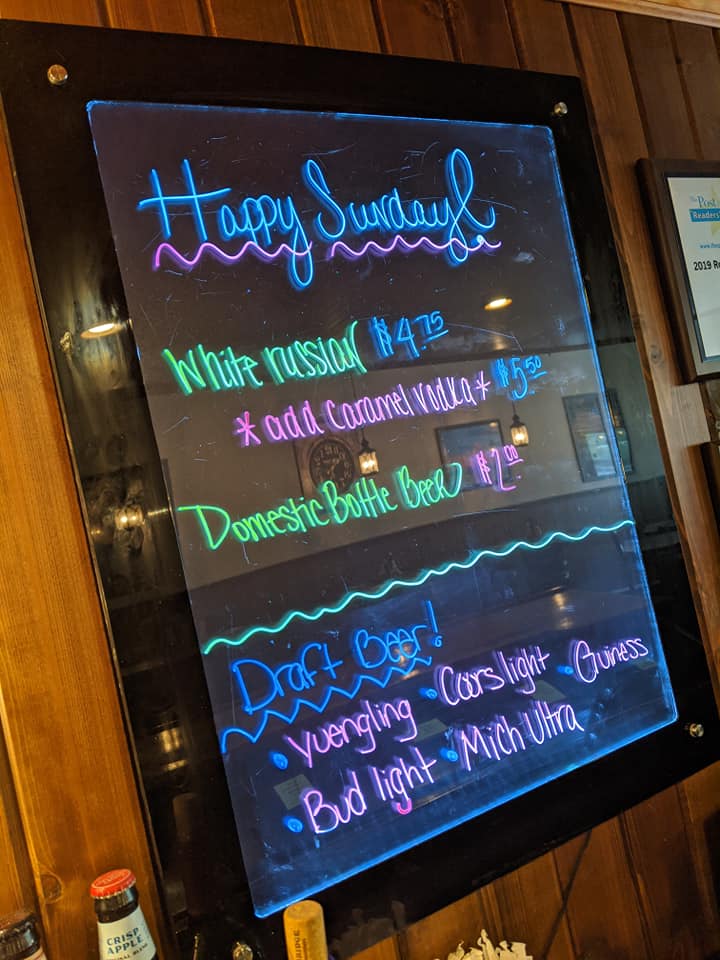 Happy Sunday!
White russian $4.75
*add caramel vodka* $5.50
Domestic Bottle Beer $2.00
Draft Beer!
• Yuengling • Coors light • Guiness
• Bud light • Mich Ultra
The Post
Readers
2019
CRISP
APPLE